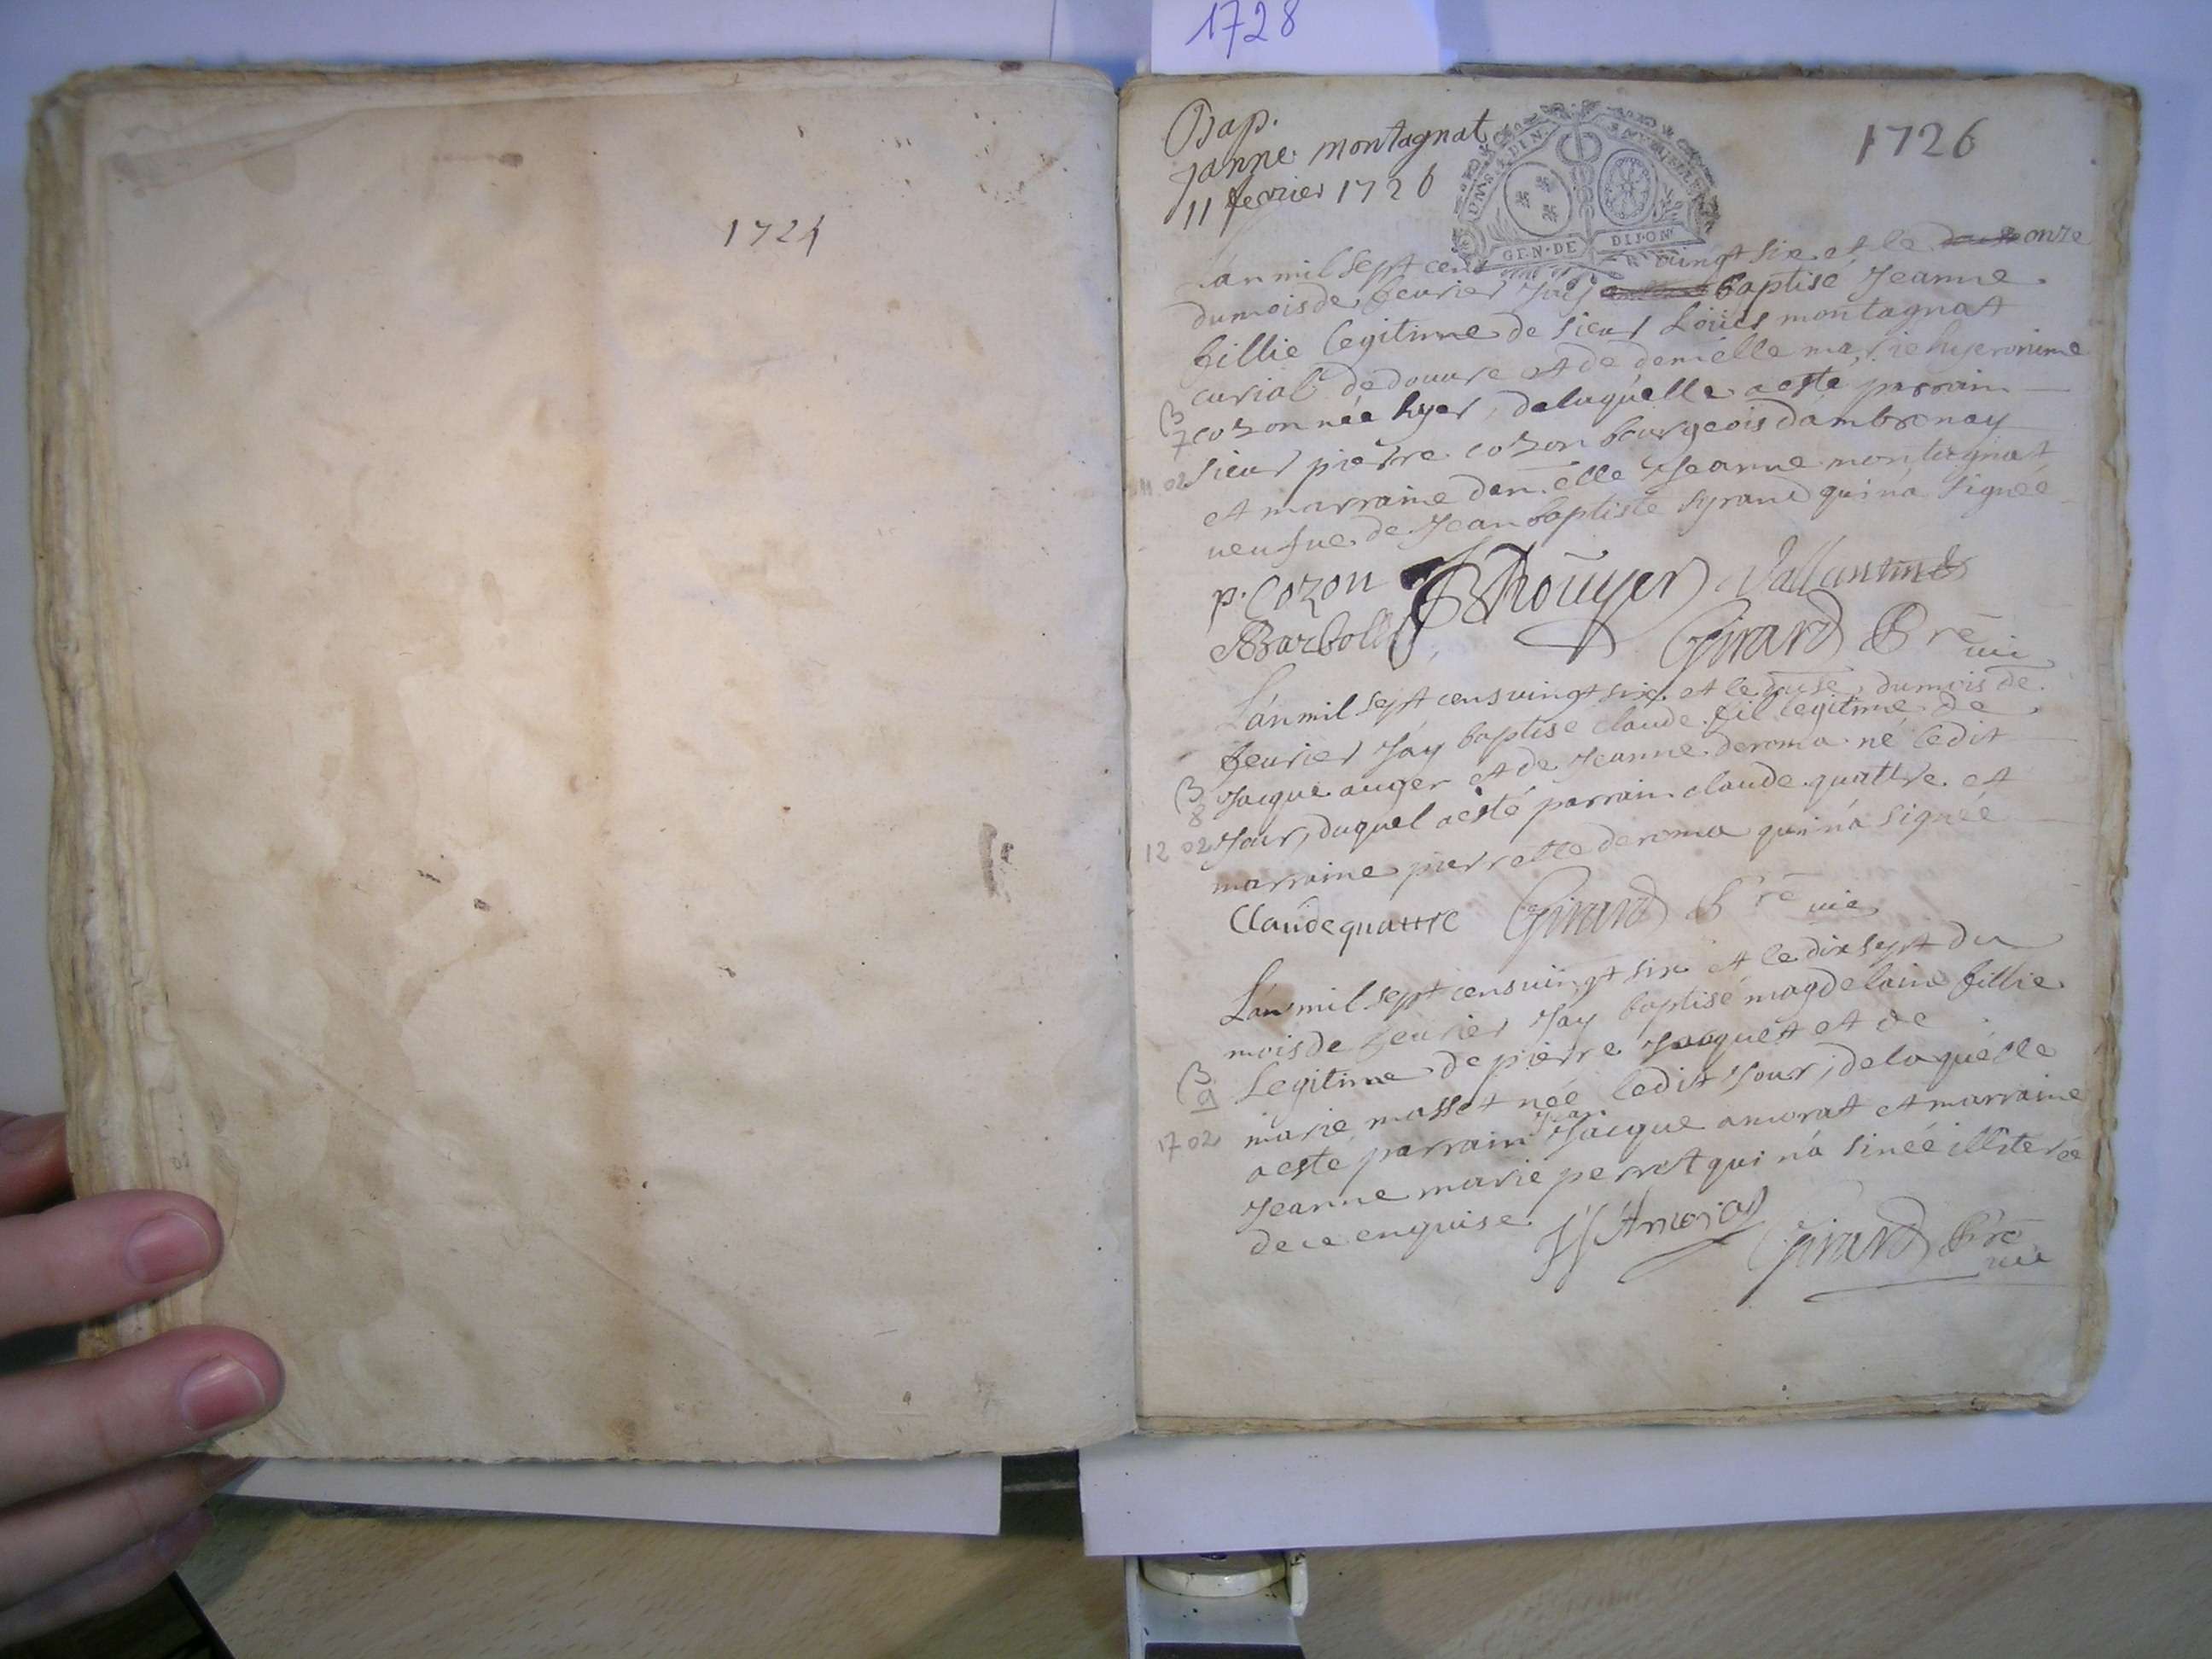 1728
1724
1726
Bap.
Janne montagnat
11 fevrier 1726
GEN·DE DIJON
Lan mil sept cens vingt six et le onze
du mois de feurier Jay baptisé Jeanne
fillie legitime de sieur Loüis montagnat
curial de douure et de demelle marie hyeronime
B 7 cozon née hyer, de laquelle a esté parrain
11 02 sieur pierre cozon bourgeois dambronay
et marraine dem.elle Jeanne montagnat
ueufue de Jean baptiste syrand qui na signée
p. Cozon Rouyer
Girard Bre uic
Lan mil sept cens uingt six et le duse du mois de
feurier Jay baptise claude fil legitime de
B 8 Jacque auger et de Jeanne deroma né ledit
12 02 Jour, duquel a esté parrain claude quattre et
marraine pierrette deroma qui na signée
Claude quattre Girard Bre uic
Lan mil sept cens uingt six et le dix sept du
mois de feurier Jay baptisé magdelaine fillie
B 9 Legitime de pierre Jacquet et de
17 02 marie massot née ledit Jour, de laquelle
a esté parrain Jean Jacque amorat et marraine
Jeanne marie perrot qui na sinée illiterée
de ce enquise. JJ Amorat Girard Bre
uic